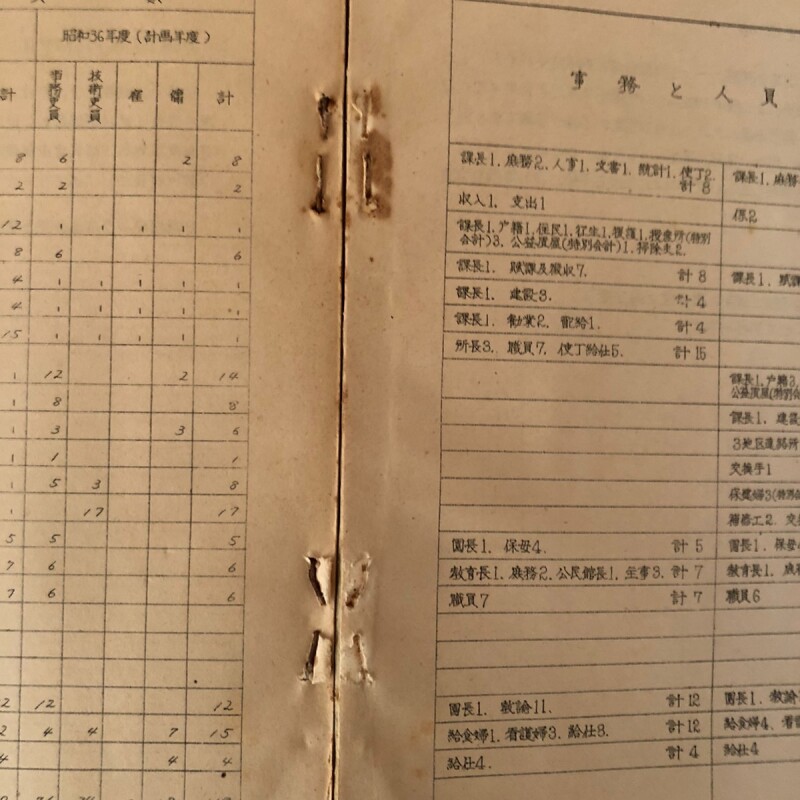 昭和36年度(計画年度)
計 事務吏員 技術吏員 雇 傭 計
8 6 2 8
2 2 2
12 〃 〃 〃 〃 〃
8 6 6
4 〃 〃 〃 〃 〃
4 〃 〃 〃 〃 〃
15 〃 〃 〃 〃 〃
〃 12 2 14
〃 8 8
〃 3 3 6
〃 1 1
〃 5 3 8
〃 17 17
5 5 5
7 6 6
7 6 6
2 12 12
2 4 4 7 15
4 4 4
事務と人員
課長1. 庶務2. 人事1. 文書1. 統計1. 使丁2. 計8 課長1. 庶務
収入1. 支出1 係2
課長1. 戸籍1. 住民1. 衛生1. 援護1. 授産所(特別
会計)3. 公益質屋(特別会計)1. 掃除夫2.
課長1. 賦課及徴収7. 計8 課長1. 賦課
課長1. 建設3. 計4
課長1. 勧業2. 配給1. 計4
所長3. 職員7. 使丁給仕5. 計15
課長1. 戸籍3.
公益質屋(特別会
課長1. 建設
3地区連絡所
交換手1
保健婦3(特別
補修工2. 交
園長1. 保母4. 計5 園長1. 保母
教育長1. 庶務2. 公民館長1. 主事3. 計7 教育長1. 庶務
職員7 計7 職員6
園長1. 教諭11. 計12 園長1. 教諭
給食婦1. 看護婦3. 給仕8. 計12 給食婦4. 看護
給仕4. 計4 給仕4